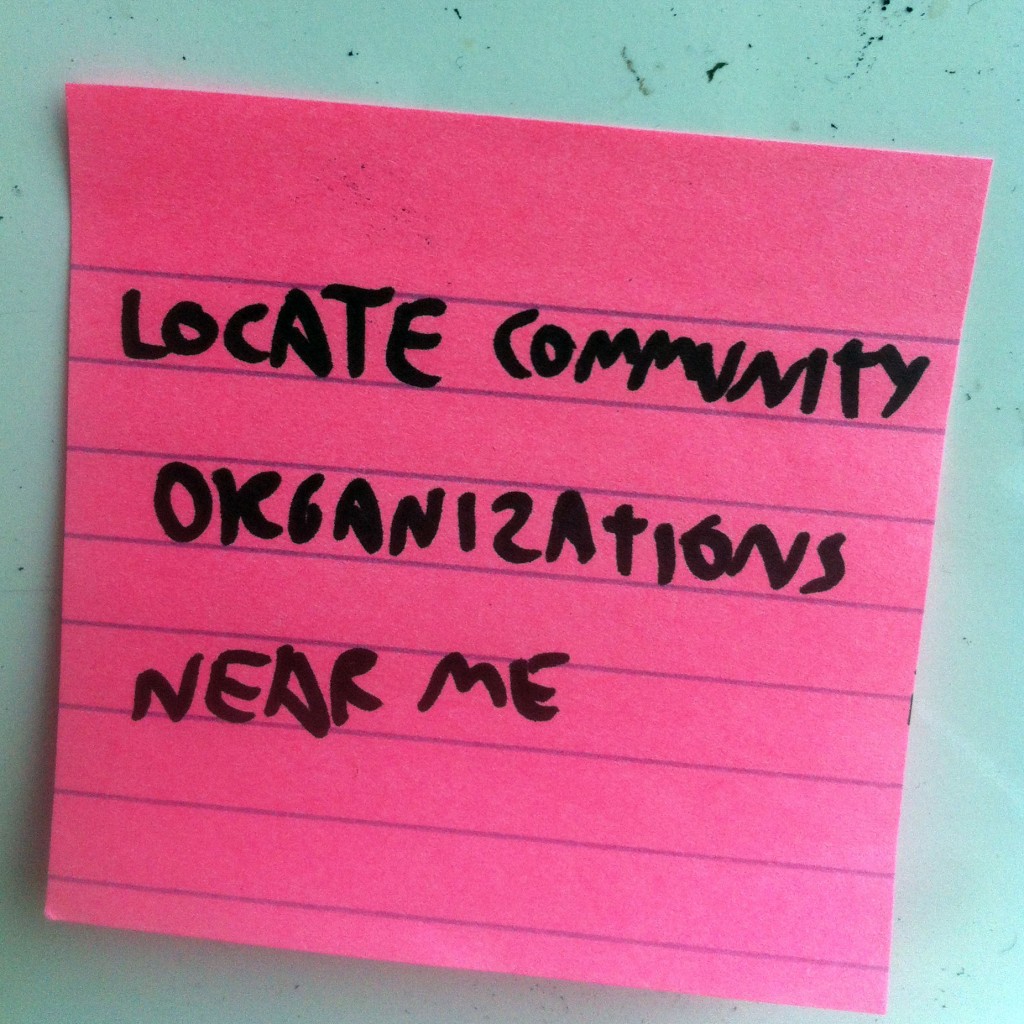 LOCATE COMMUNITY
ORGANIZATIONS
NEAR ME